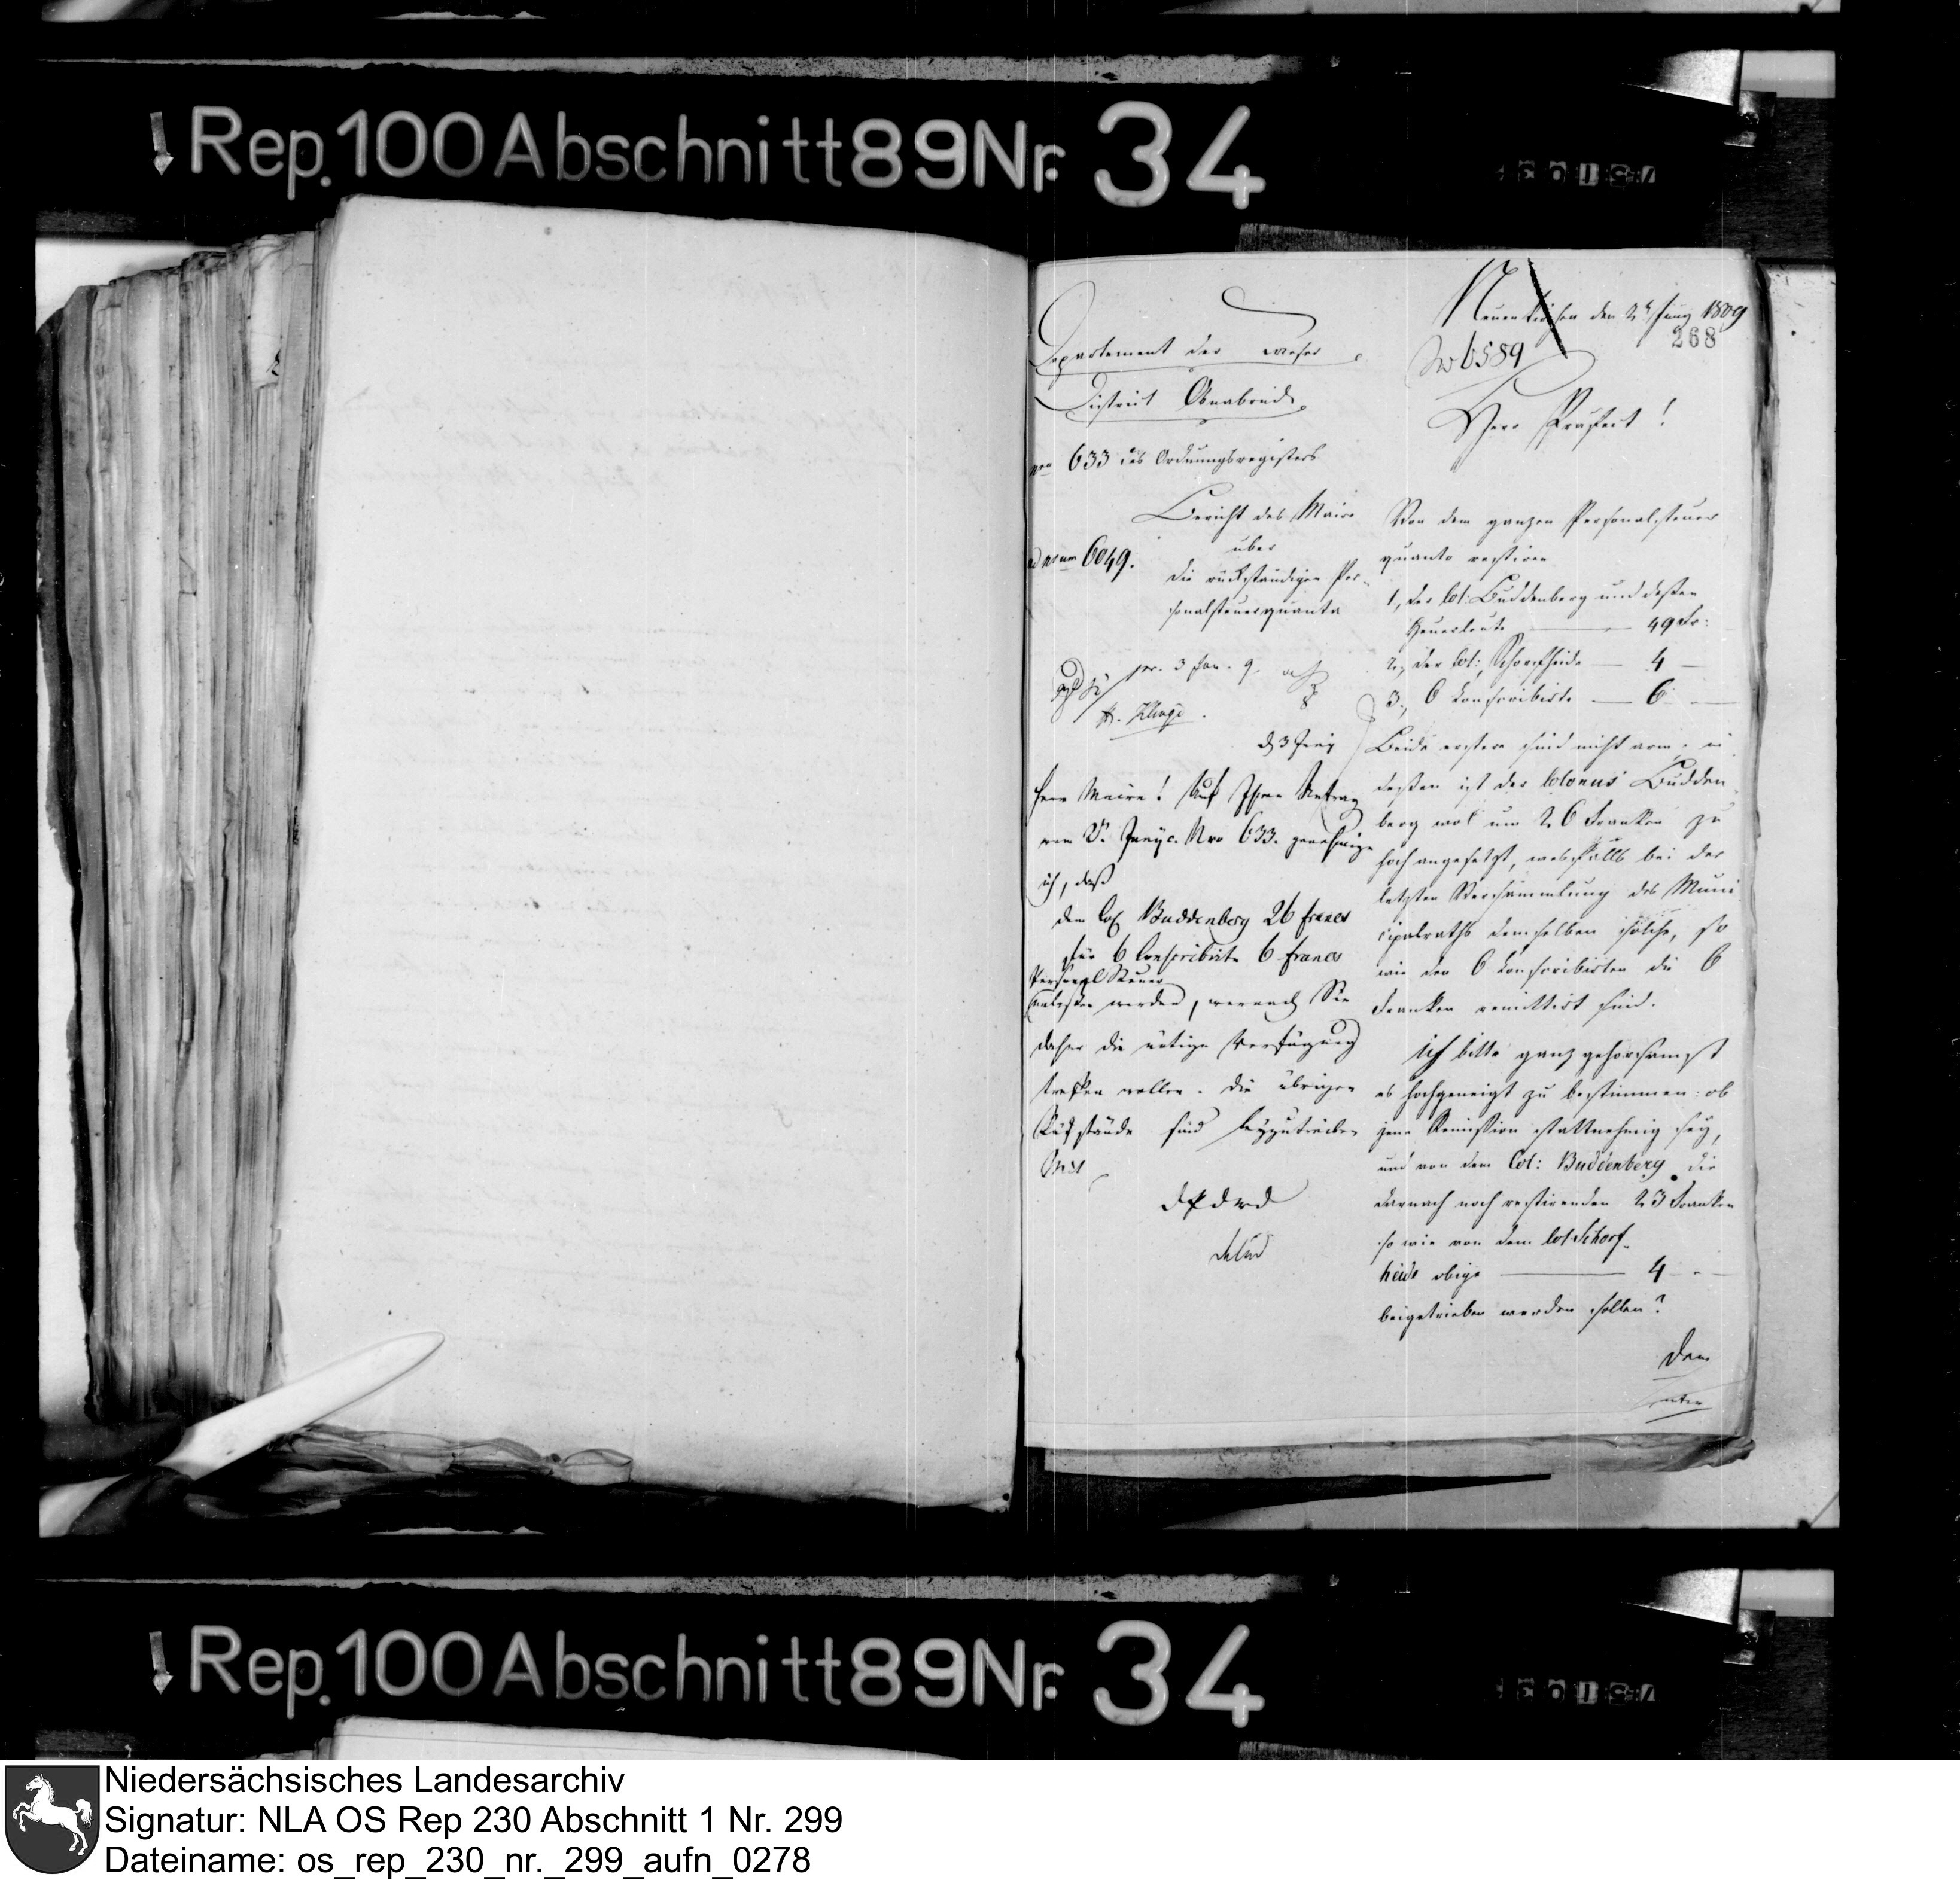 Rep. 100 Abschnitt 89 Nr. 34
Neuenkirchen den 2t Juny 1809
268
6589
Departement der Weser
District Osnabrück
Herr Präfect!
nro 633 des Ordnungsregisters
Bericht des Maire
über
die rückständigen Per-
sonalsteuerquanta
ad num 6049.
pr. 3 Jun. 9.
d 3 Juny
Herr Maire! Auf Ihren Antrag
vom 2. Juny c. Nro 633. genehmige
ich, daß
dem Col. Buddenberg 26 francs
für 6 Conscribirte 6 francs
Personal Steuer
erlassen werden, wornach Sie
daher die nötige Verfügung
treffen wollen. Die übrigen
Rückstände sind beyzutreiben
Von dem ganzen Personalsteuer
quanto restiren
1, der Col: Buddenberg und dessen
Heuerleute — 49 Fr:
2, der Col: Schorfheide — 4 —
3, 6 Conscribirte — 6 —
Beide erstere sind nicht arm, in
dessen ist der Colonus Budden
berg wol um 26 Franken zu
hoch angesetzt, weshalb bei der
letzten Versammlung des Muni
cipalraths demselben solche, so
wie den 6 Conscribirten die 6
Franken remittirt sind.
Ich bitte ganz gehorsamst
es hochgeneigt zu bestimmen: ob
jene Remission stattnehmig sey,
und von dem Col: Buddenberg die
darnach noch restirenden 23 Franken
so wie von dem Col. Schorf-
heide obige — 4 —
beigetrieben werden sollen?
Dem
Rep. 100 Abschnitt 89 Nr. 34
Niedersächsisches Landesarchiv
Signatur: NLA OS Rep 230 Abschnitt 1 Nr. 299
Dateiname: os_rep_230_nr._299_aufn_0278